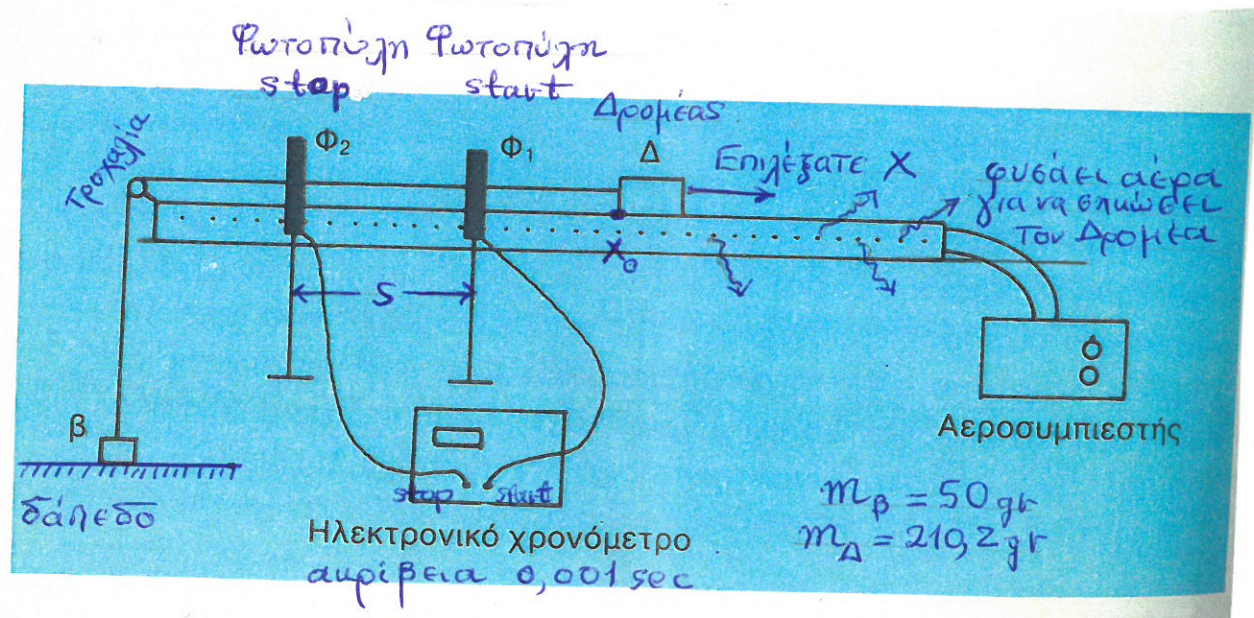 Φωτοπύλη Φωτοπύλη
stop start
Δρομέας
Τροχαλία
Φ2
Φ1
Δ
Επιλέξατε X
φυσάει αέρα
για να σηκώσει
τον Δρομέα
X0
S
β
δάπεδο
stop start
Ηλεκτρονικό χρονόμετρο
ακρίβεια 0,001 sec
Αεροσυμπιεστής
mβ = 50 gr
mΔ = 210,2 gr